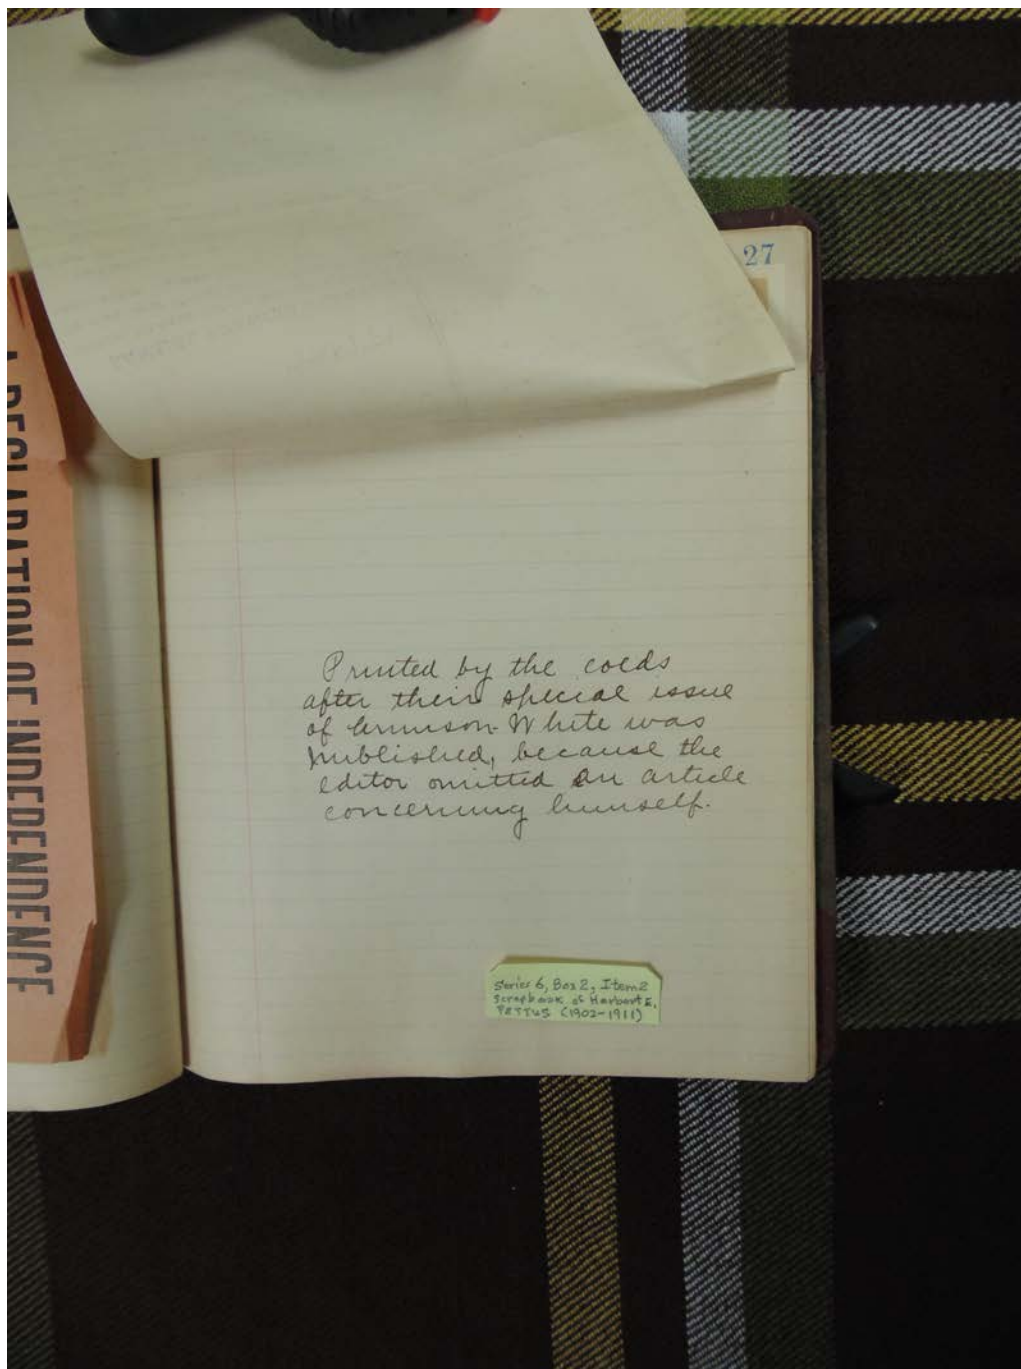 27
A DECLARATION OF INDEPENDENCE
Printed by the coeds
after their special issue
of Crimson-White was
published, because the
editor omitted an article
concerning himself.
Series 6, Box 2, Item 2
Scrapbook of Harbert E.
PETTUS (1902-1911)